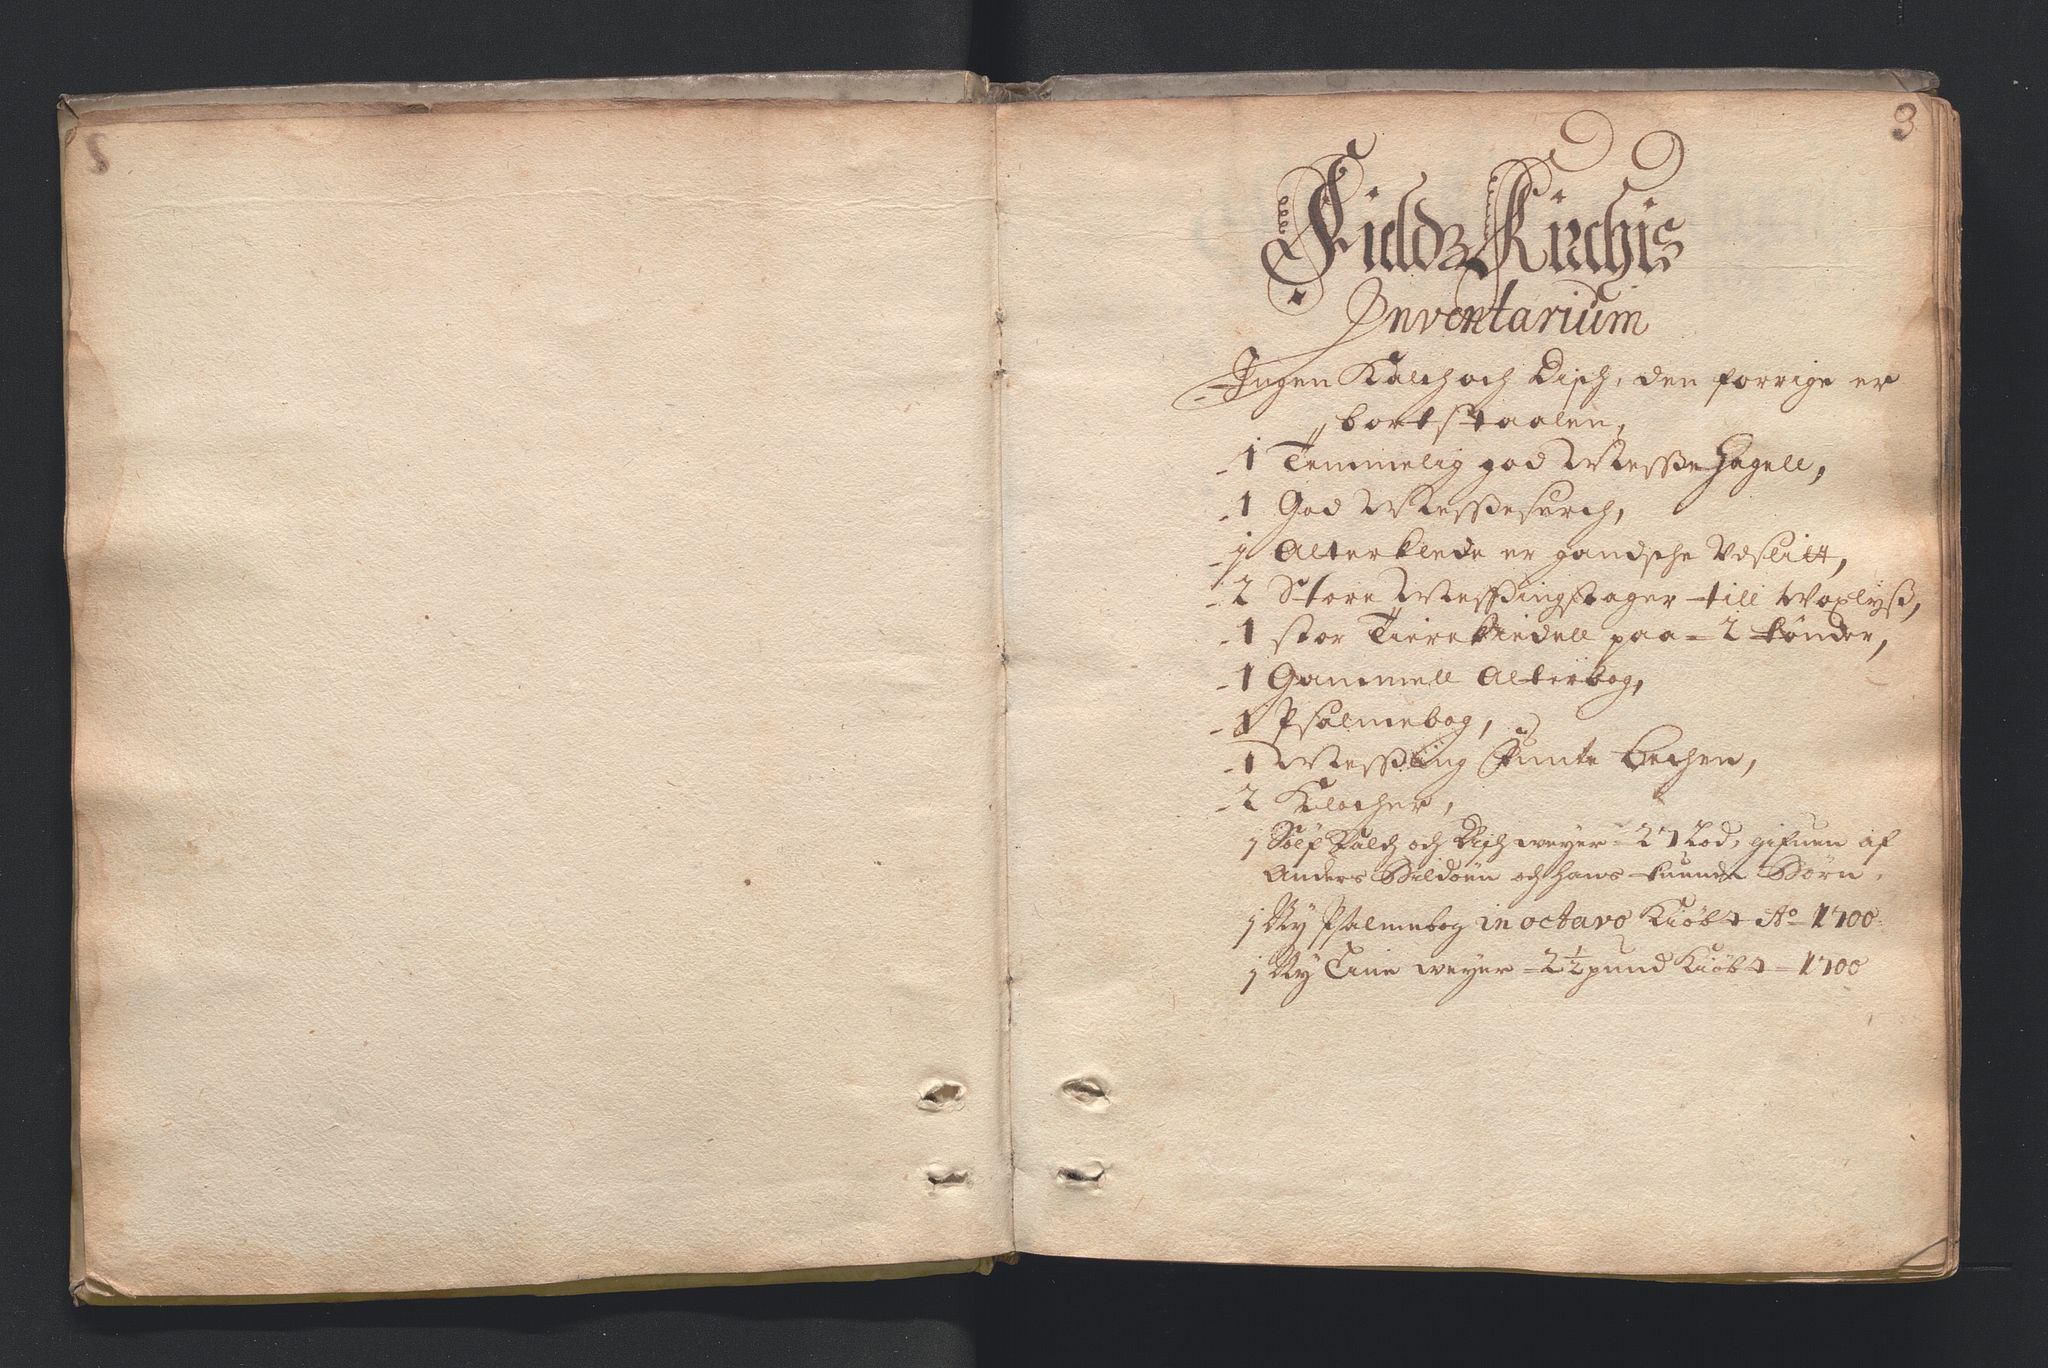 3
Fieldz Kirchis
Inventarium
Ingen Kalch och Disch, den forrige er
bortstaalen,
1 Temmelig god Messe Hagell,
1 God Messeserch,
1 Alterklede er gandsche Udslitt,
2 Store Messingstager till Voxlyß,
1 stor Tierekiedell paa 2 tönder,
1 Gammell Alterbog,
1 Psalmebog,
1 Messing Funte Bechen,
2 Klocher,
1 Sölf Kalch och Disch weyer 27 Lod, gifuen af
Anders Sildöen och Hans Börn.
1 Ny Psalmebog in octavo Kiöbt Ao 1700
1 Ny Tine weyer 2½ pund Kiöbt 1700